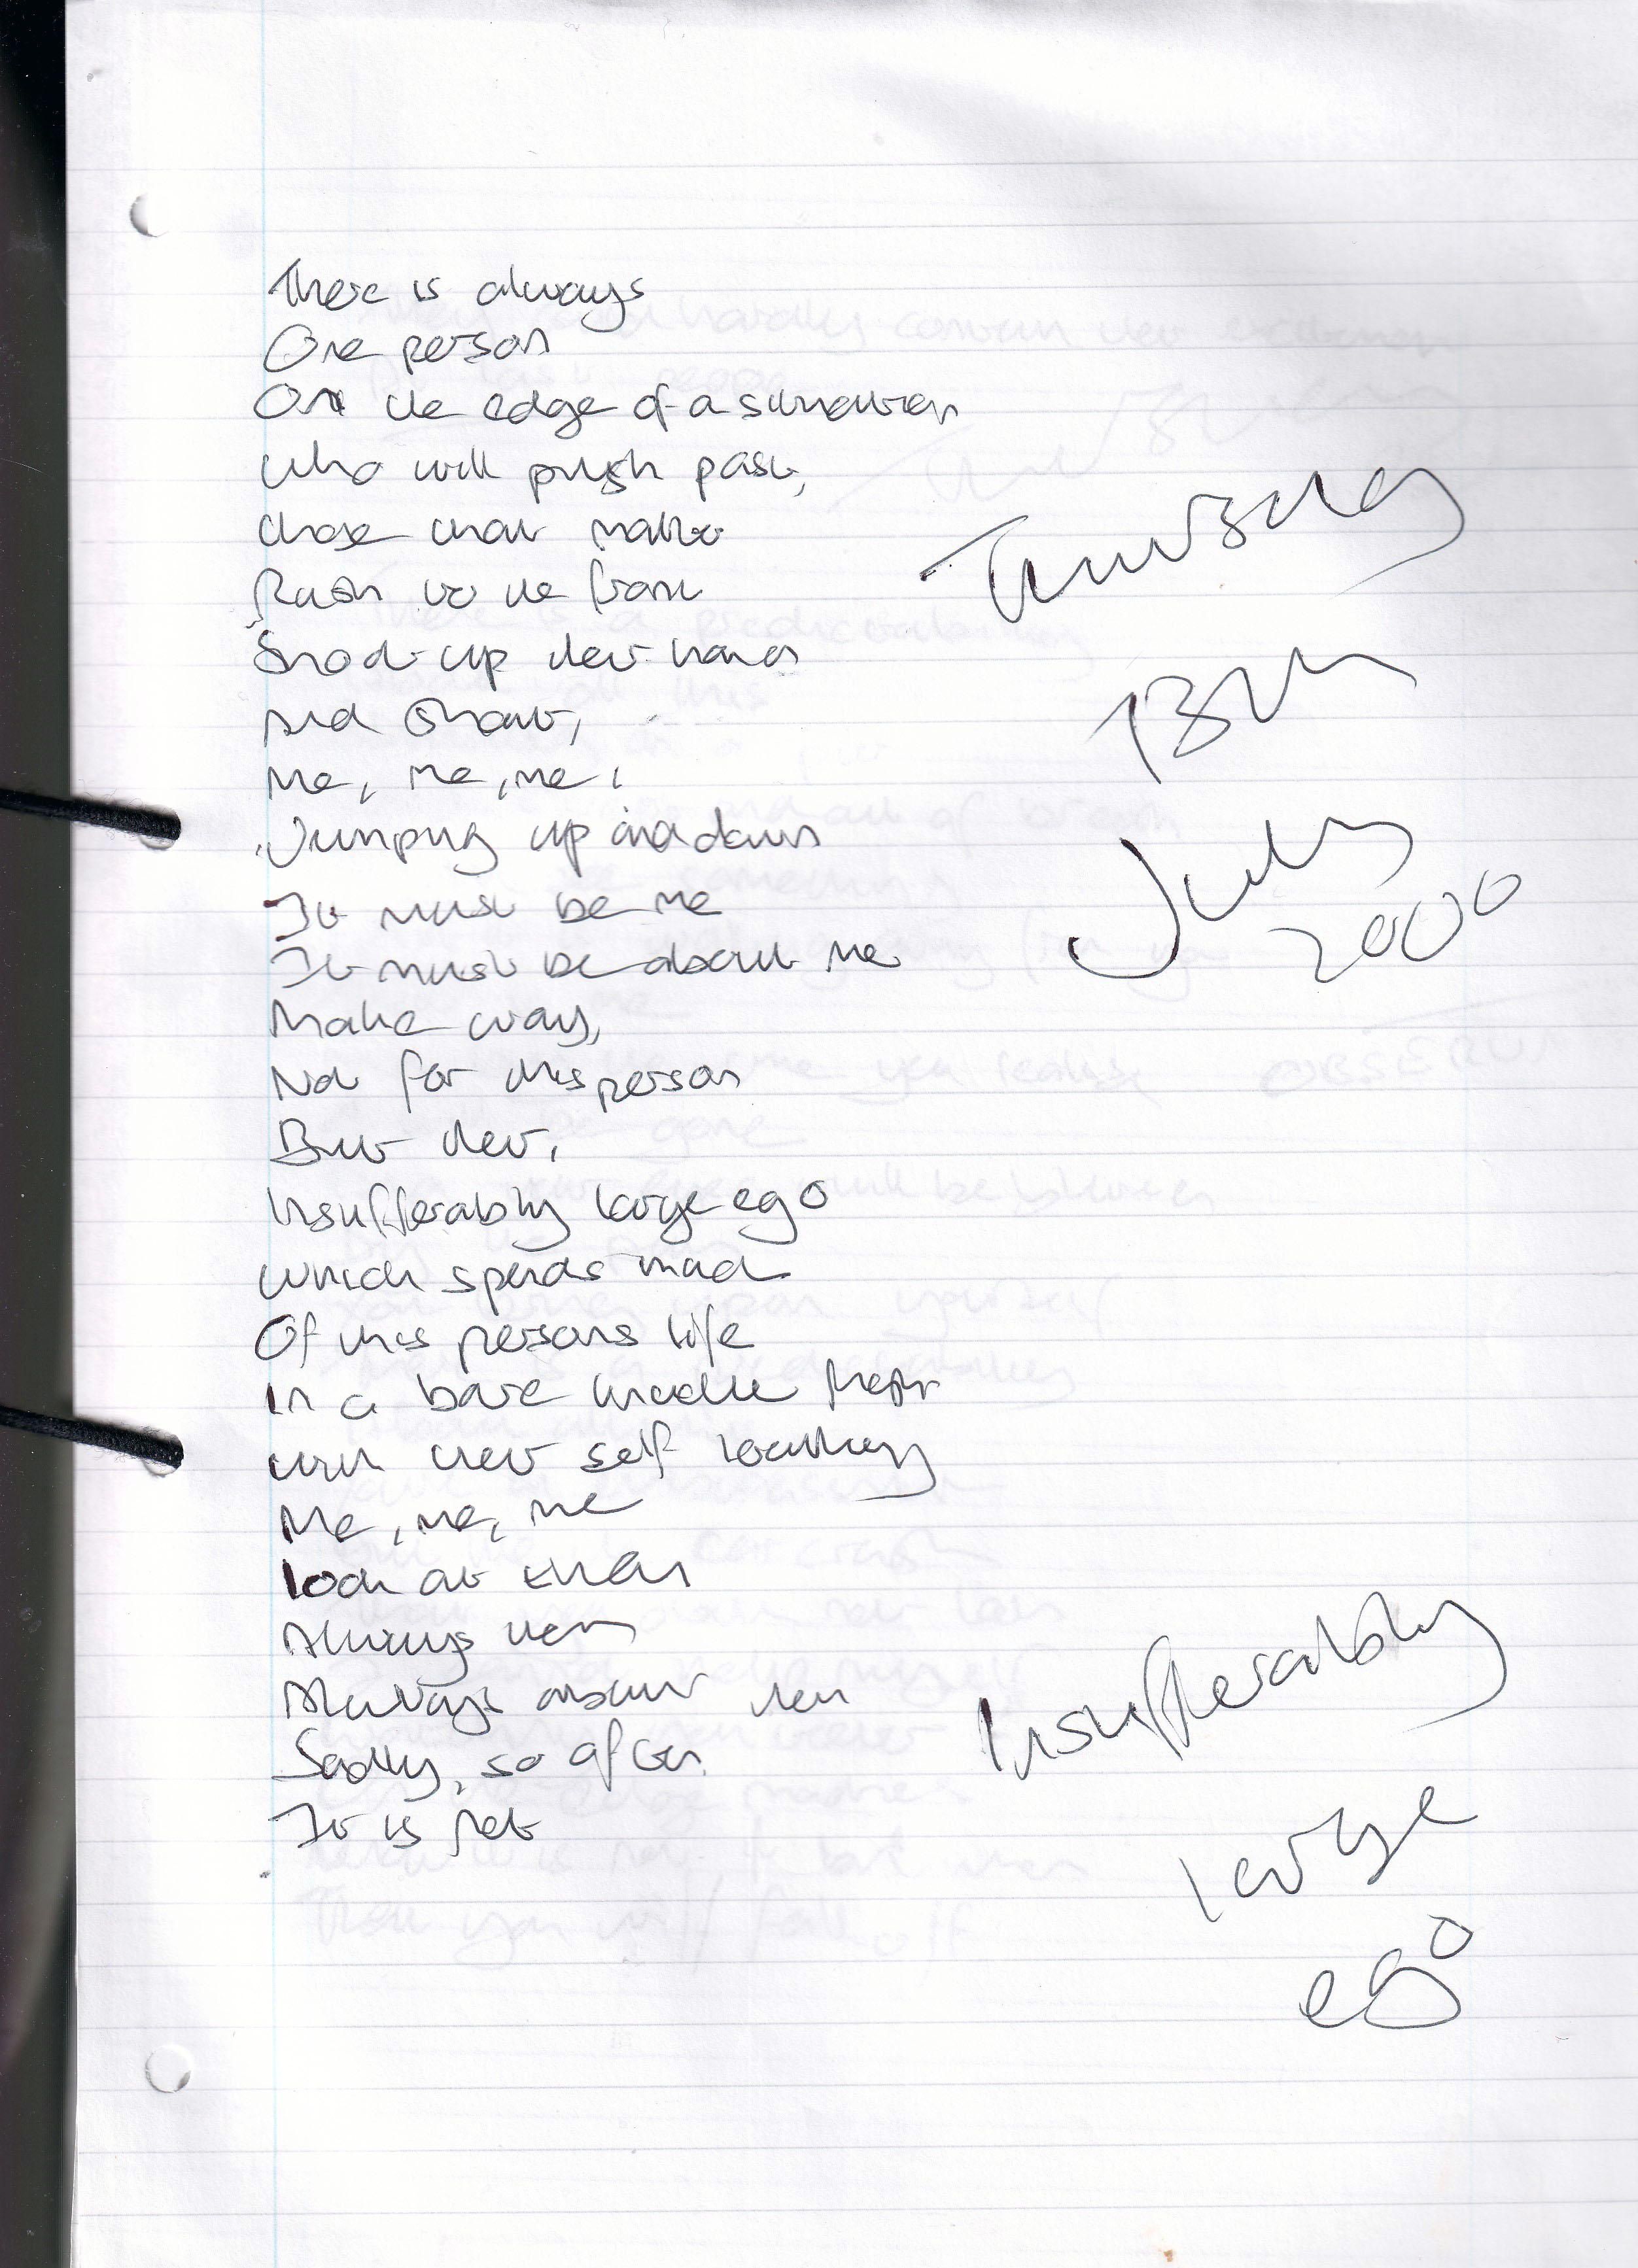 There is always
One person
On the edge of a situation
who will push past,
those that matter
Rush to the front
Shoot up their hand
And Shout,
Me, me, me,
Jumping up and down
It must be me
It must be about me
Make way,
Not for this person
But their,
Insufferably large ego
which spends much
Of this persons life
In a bare huddle
with their self locality
Me, me, me
look at them
Always them
Always about them
Sadly, so often
It is not
Thursday
13th
July
2000
Insufferably
large
ego